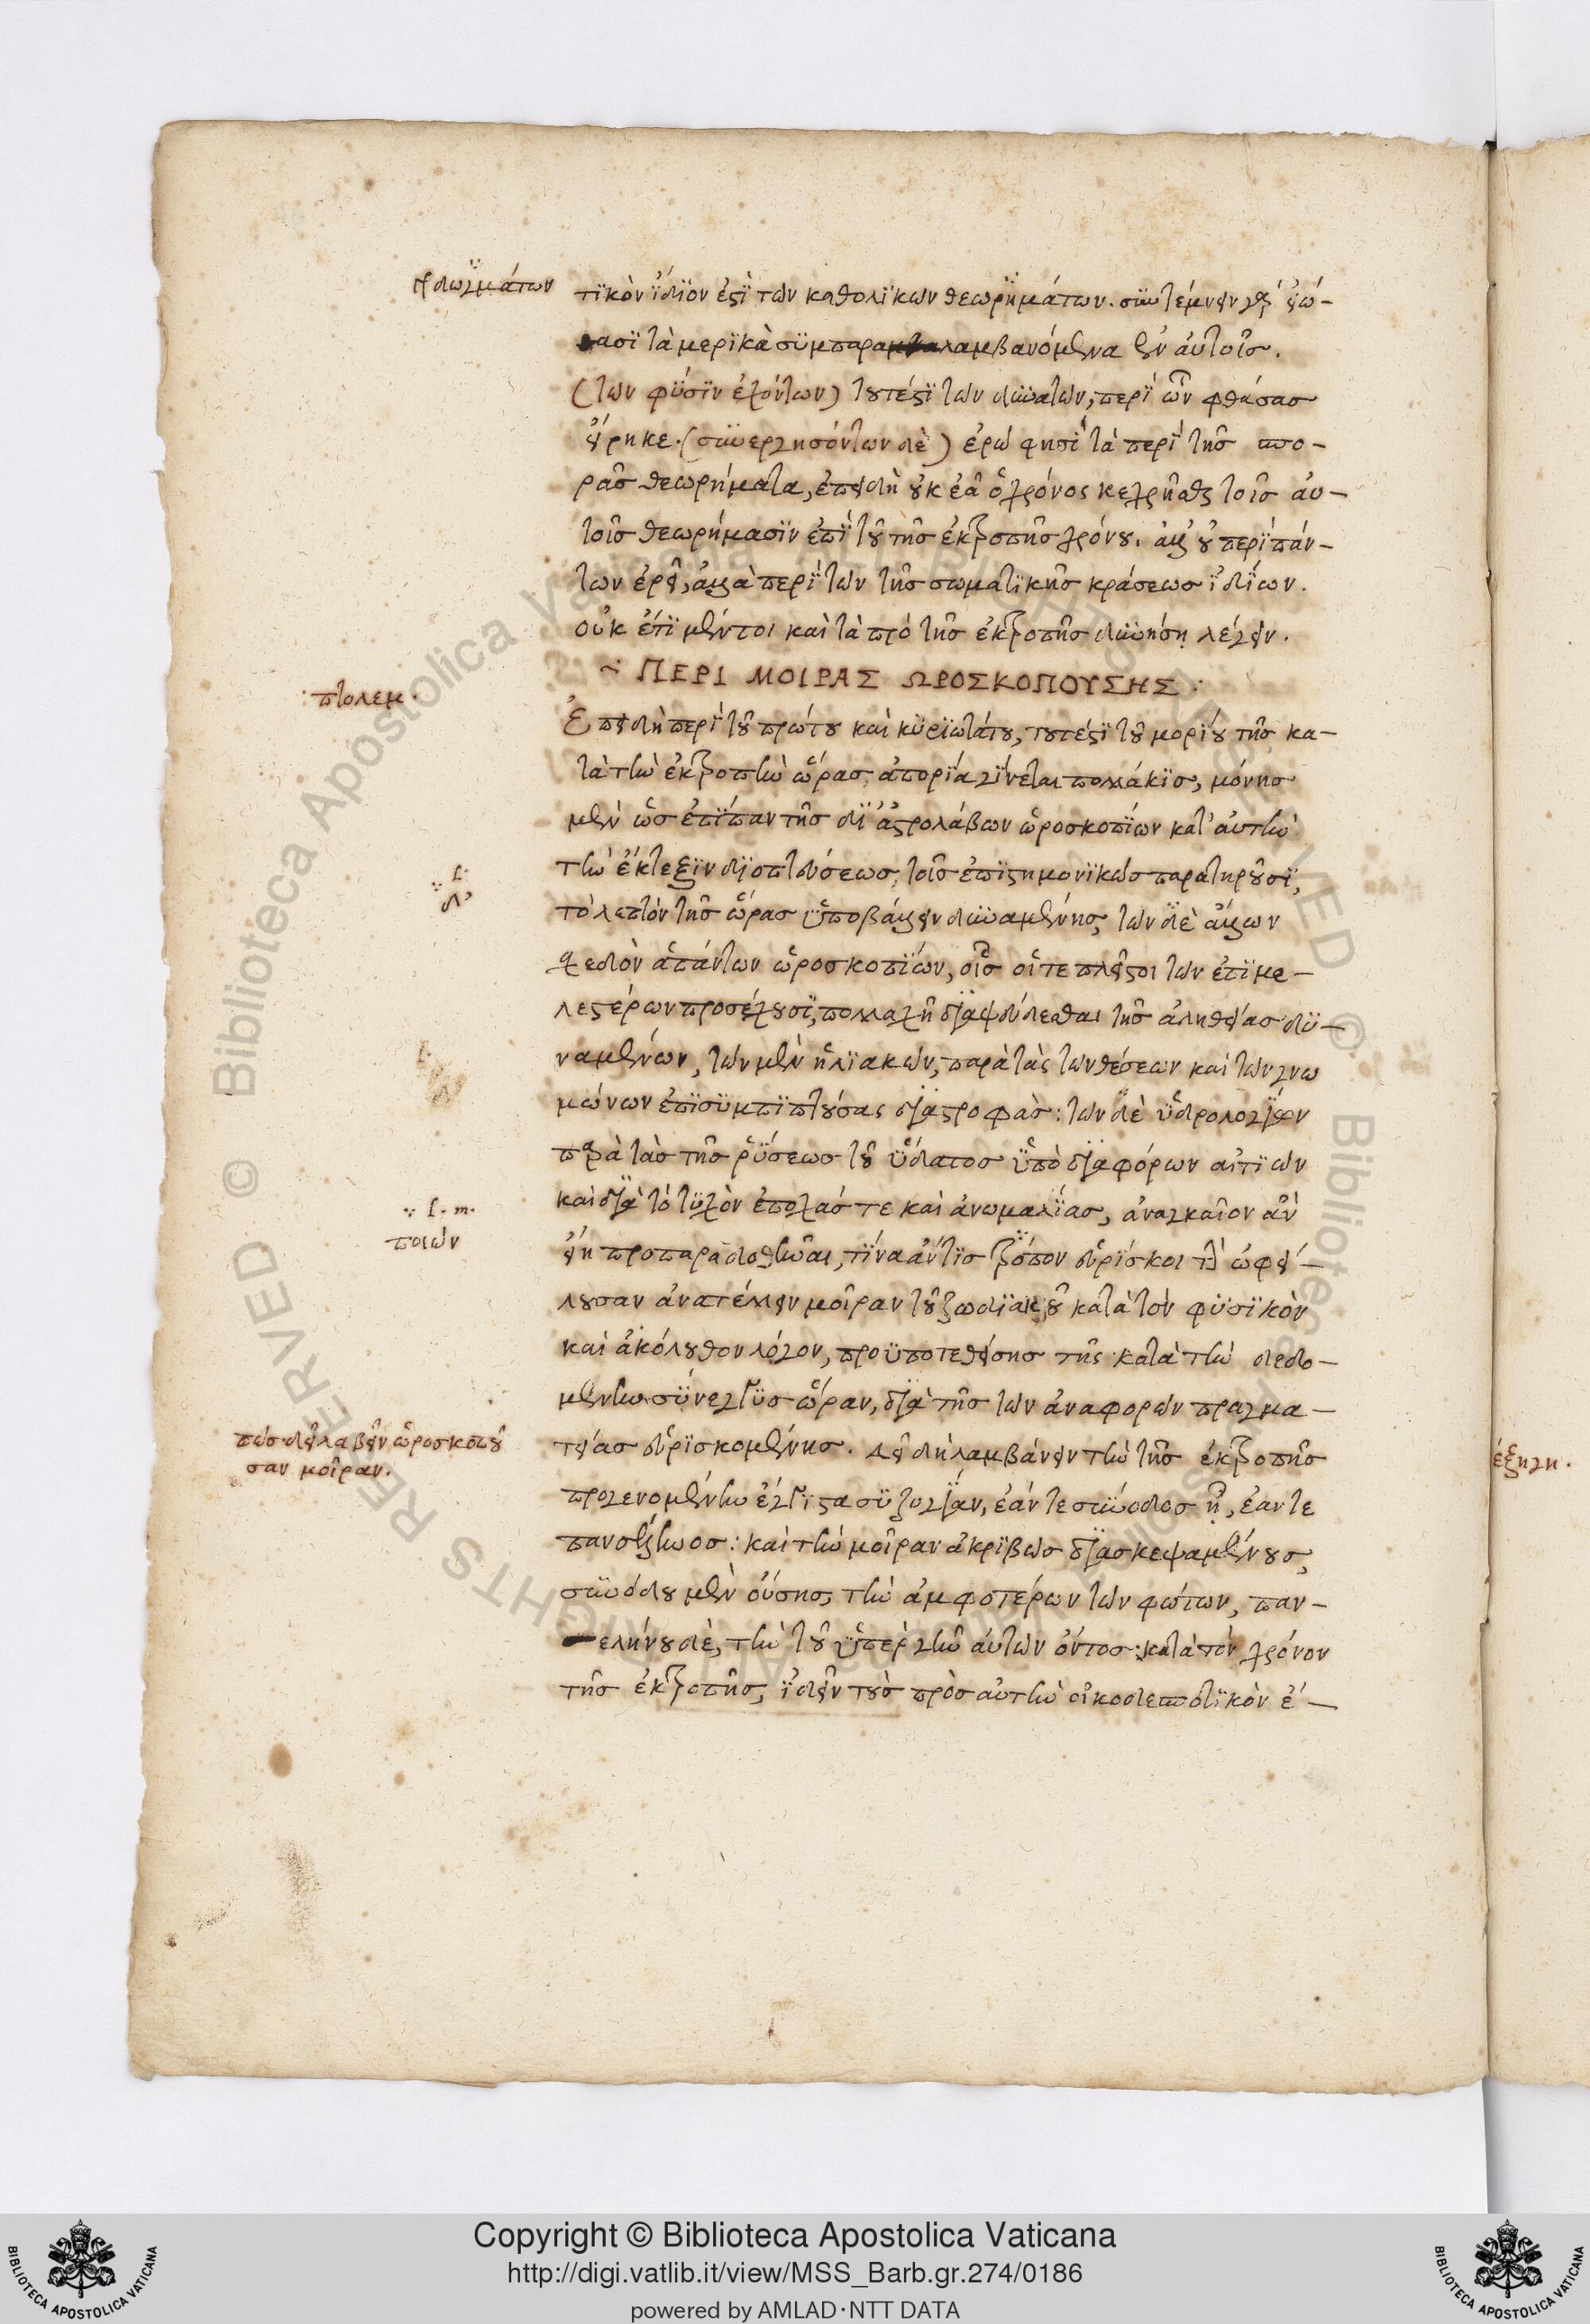 ἢ δωγμάτων
τϊκὸν ἴδϊον ἐστὶ τῶν καθολϊκων θεωρημάτων. συντέμνειν γὰρ εἰώ-
θασϊ τὰ μερϊκὰ συμπαραλαμβανόμενα ἐν αὐτοῖς.
(τῶν φύσϊν ἐχόντων) τουτέστι τῶν δυνατῶν, περὶ ὧν φθάσας
εἴρηκε. (συνεργησόντων δὲ) ἐρῶ φησὶ τὰ περὶ τῆς σπο-
ρᾶς θεωρήματα, ἐπειδὴ οὐκ ἐᾷ ὁ χρόνος κεχρῆσθαι τοῖς αὐ-
τοῖς θεωρήμασϊν ἐπὶ τοῦ τῆς ἐκτροπῆς χρόνου. ἀλλ' οὐ περὶ πάν-
των ἐρεῖ, ἀλλὰ περὶ τῶν τῆς σωματϊκῆς κράσεως ἰδίων.
οὐκ ἔτι μέντοι καὶ τὰ πρὸ τῆς ἐκτροπῆς δυνήσῃ λέγειν.
ΠΕΡΙ ΜΟΙΡΑΣ ΩΡΟΣΚΟΠΟΥΣΗΣ
πτολεμ.
Ἐπειδὴ περὶ τοῦ πρώτου καὶ κυριωτάτου, τουτέστι τοῦ μορίου τῆς κα-
τὰ τὴν ἐκτροπὴν ὥρας, ἀπορία γίνεται πολλάκις, μόνης
μὲν ὡς ἐπίπαν τῆς δι' ἀστρολάβων ὡροσκοπίων κατ' αὐτὴν
τὴν ἔκτεξιν διοπτεύσεως, τοῖς ἐπιστημονικῶς παρατηροῦσι,
τὸ λεπτὸν τῆς ὥρας ὑποβάλλειν δυναμένης, τῶν δὲ ἄλλων
σχεδὸν ἁπάντων ὡροσκοπίων, οἷς οἵ τε πλεῖστοι τῶν ἐπιμε-
λεστέρων προσέχουσι, πολλαχῆ διαψεύδεσθαι τῆς ἀληθείας δυ-
ναμένων, τῶν μὲν ἡλιακῶν, παρὰ τὰς τῶν θέσεων καὶ τῶν γνω
μώνων ἐπισυμπιπτούσας διαστροφάς: τῶν δὲ ὑδρολογίων
παρὰ τὰς τῆς ῥύσεως τοῦ ὕδατος ὑπὸ διαφόρων αἰτιῶν
καὶ διὰ τὸ τυχὸν ἐποχάς τε καὶ ἀνωμαλίας, ἀναγκαῖον ἂν
∵ ſ. m.
ποιῶν
εἴη προπαραδοθῆναι, τίνα ἄν τις τρόπον εὑρίσκοι τὴν ὠφεί-
λουσαν ἀνατέλλειν μοῖραν τοῦ ζωδιακοῦ κατὰ τὸν φυσικὸν
καὶ ἀκόλουθον λόγον, προϋποτεθείσης τῆς κατὰ τὴν δεδο-
μένην σύνεγγυς ὥραν, διὰ τῆς τῶν ἀναφορῶν πραγμα-
πῶς δεῖ λαβεῖν ὡροσκοποῦ
σαν μοῖραν.
τείας εὑρισκομένης. δεῖ δὴ λαμβάνειν τὴν τῆς ἐκτροπῆς
προγενομένην ἔγγιστα συζυγίαν, ἐάν τε σύνοδος ᾖ, ἐάν τε
πανσέληνος: καὶ τὴν μοῖραν ἀκριβῶς διασκεψαμένους,
συνόδου μὲν οὔσης, τὴν ἀμφοτέρων τῶν φώτων, παν-
σελήνου δὲ, τὴν τοῦ ὑπὲρ γῆν αὐτῶν ὄντος κατὰ τὸν χρόνον
τῆς ἐκτροπῆς, ἰδεῖν τοὺς πρὸς αὐτὴν οἰκοδεσποτικὸν ἔ-
ἐξηγη.
Copyright © Biblioteca Apostolica Vaticana
http://digi.vatlib.it/view/MSS_Barb.gr.274/0186
powered by AMLAD·NTT DATA
BIBLIOTECA APOSTOLICA VATICANA
BIBLIOTECA APOSTOLICA VATICANA